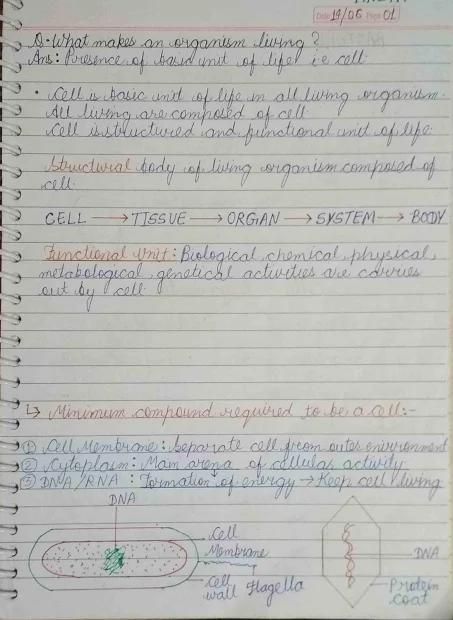 Date 14/06 Page 01
Q. What makes an organism living?
Ans: Presence of basic unit of life i.e cell.
• Cell is basic unit of life in all living organism.
All living are composed of cell.
Cell is structured and functional unit of life.
Structural body of living organism composed of
cell.
CELL → TISSUE → ORGIAN → SYSTEM → BODY
Functional Unit: Biological, chemical, physical,
metabological, genetical activities are carries
out by cell.
↳ Minimum compound required to be a cell:-
① Cell Membrane: Separate cell from outer environment
② Cytoplasm: Main arena of cellular activity
③ DNA/RNA: Formation of energy → Keep cell living
DNA
Cell
Membrane
Cell
wall
Flagella
DNA
Protein
coat